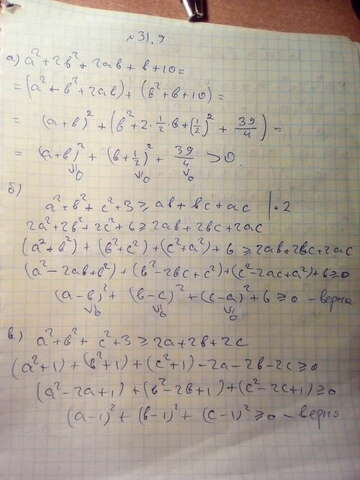 №31.9
а) a²+2b²+2ab+b+10=
=(a²+b²+2ab)+(b²+b+10)=
=(a+b)²+(b²+2·1/2 b+(1/2)²+39/4)=
=(a+b)²+(b+1/2)²+39/4>0.
∨0 ∨0 ∨0
б)
a²+b²+c²+3≥ab+bc+ac |·2
2a²+2b²+2c²+6≥2ab+2bc+2ac
(a²+b²)+(b²+c²)+(c²+a²)+6≥2ab+2bc+2ac
(a²-2ab+b²)+(b²-2bc+c²)+(c²-2ac+a²)+6≥0
(a-b)²+(b-c)²+(c-a)²+6≥0 - верно
∨0 ∨0 ∨0
в) a²+b²+c²+3≥2a+2b+2c
(a²+1)+(b²+1)+(c²+1)-2a-2b-2c≥0
(a²-2a+1)+(b²-2b+1)+(c²-2c+1)≥0
(a-1)²+(b-1)²+(c-1)²≥0 - верно